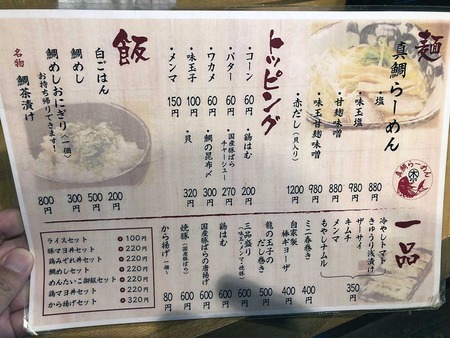 麺
真鯛らーめん
・塩 880
・味玉塩 980
・甘麹味噌 880
・味玉甘麹味噌 980
・赤だし(貝入り) 1200
真鯛らーめん
トッピング
・コーン 60円
・バター 60円
・ワカメ 60円
・味玉子 100円
・メンマ 150円
・鶏はむ 200
・国産豚ばらチャーシュー 270
・鯛の昆布〆 300
・貝 320
飯
白ごはん 200円
鯛めし 500円
鯛めしおにぎり(一個) 300円
お持ち帰りできます!
名物 鯛茶漬け 800円
一品
冷やしトマト
きゅうり浅漬け
ザーサイ
キムチ
メンマ
もやしナムル
350円
ミニ春巻き 400円
自家製棒ギョーザ 400円
龍の玉子のだし巻き 500円
三品盛り
(味玉・メンマ・焼豚) 600円
鶏はむ 600円
国産豚ばらの唐揚げ 600円
焼豚 600円
から揚げ(一個) 80円
ライスセット +100円
豚マヨ丼セット +220円
鶏みぞれ丼セット +220円
鯛めしセット +220円
めんたいこ御飯セット +220円
鶏マヨ丼セット +220円
から揚げセット +320円